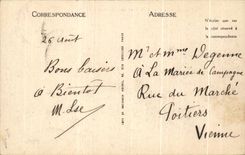 CORRESPONDANCE
ADRESSE
N'écrire que sur
le côté réservé à
la correspondance
26 août
Bons baisers
à Bientôt
M. Lse
Mr et Mme Degenne
À La Mariée de Campagne
Rue du Marché
Poitiers
Vienne